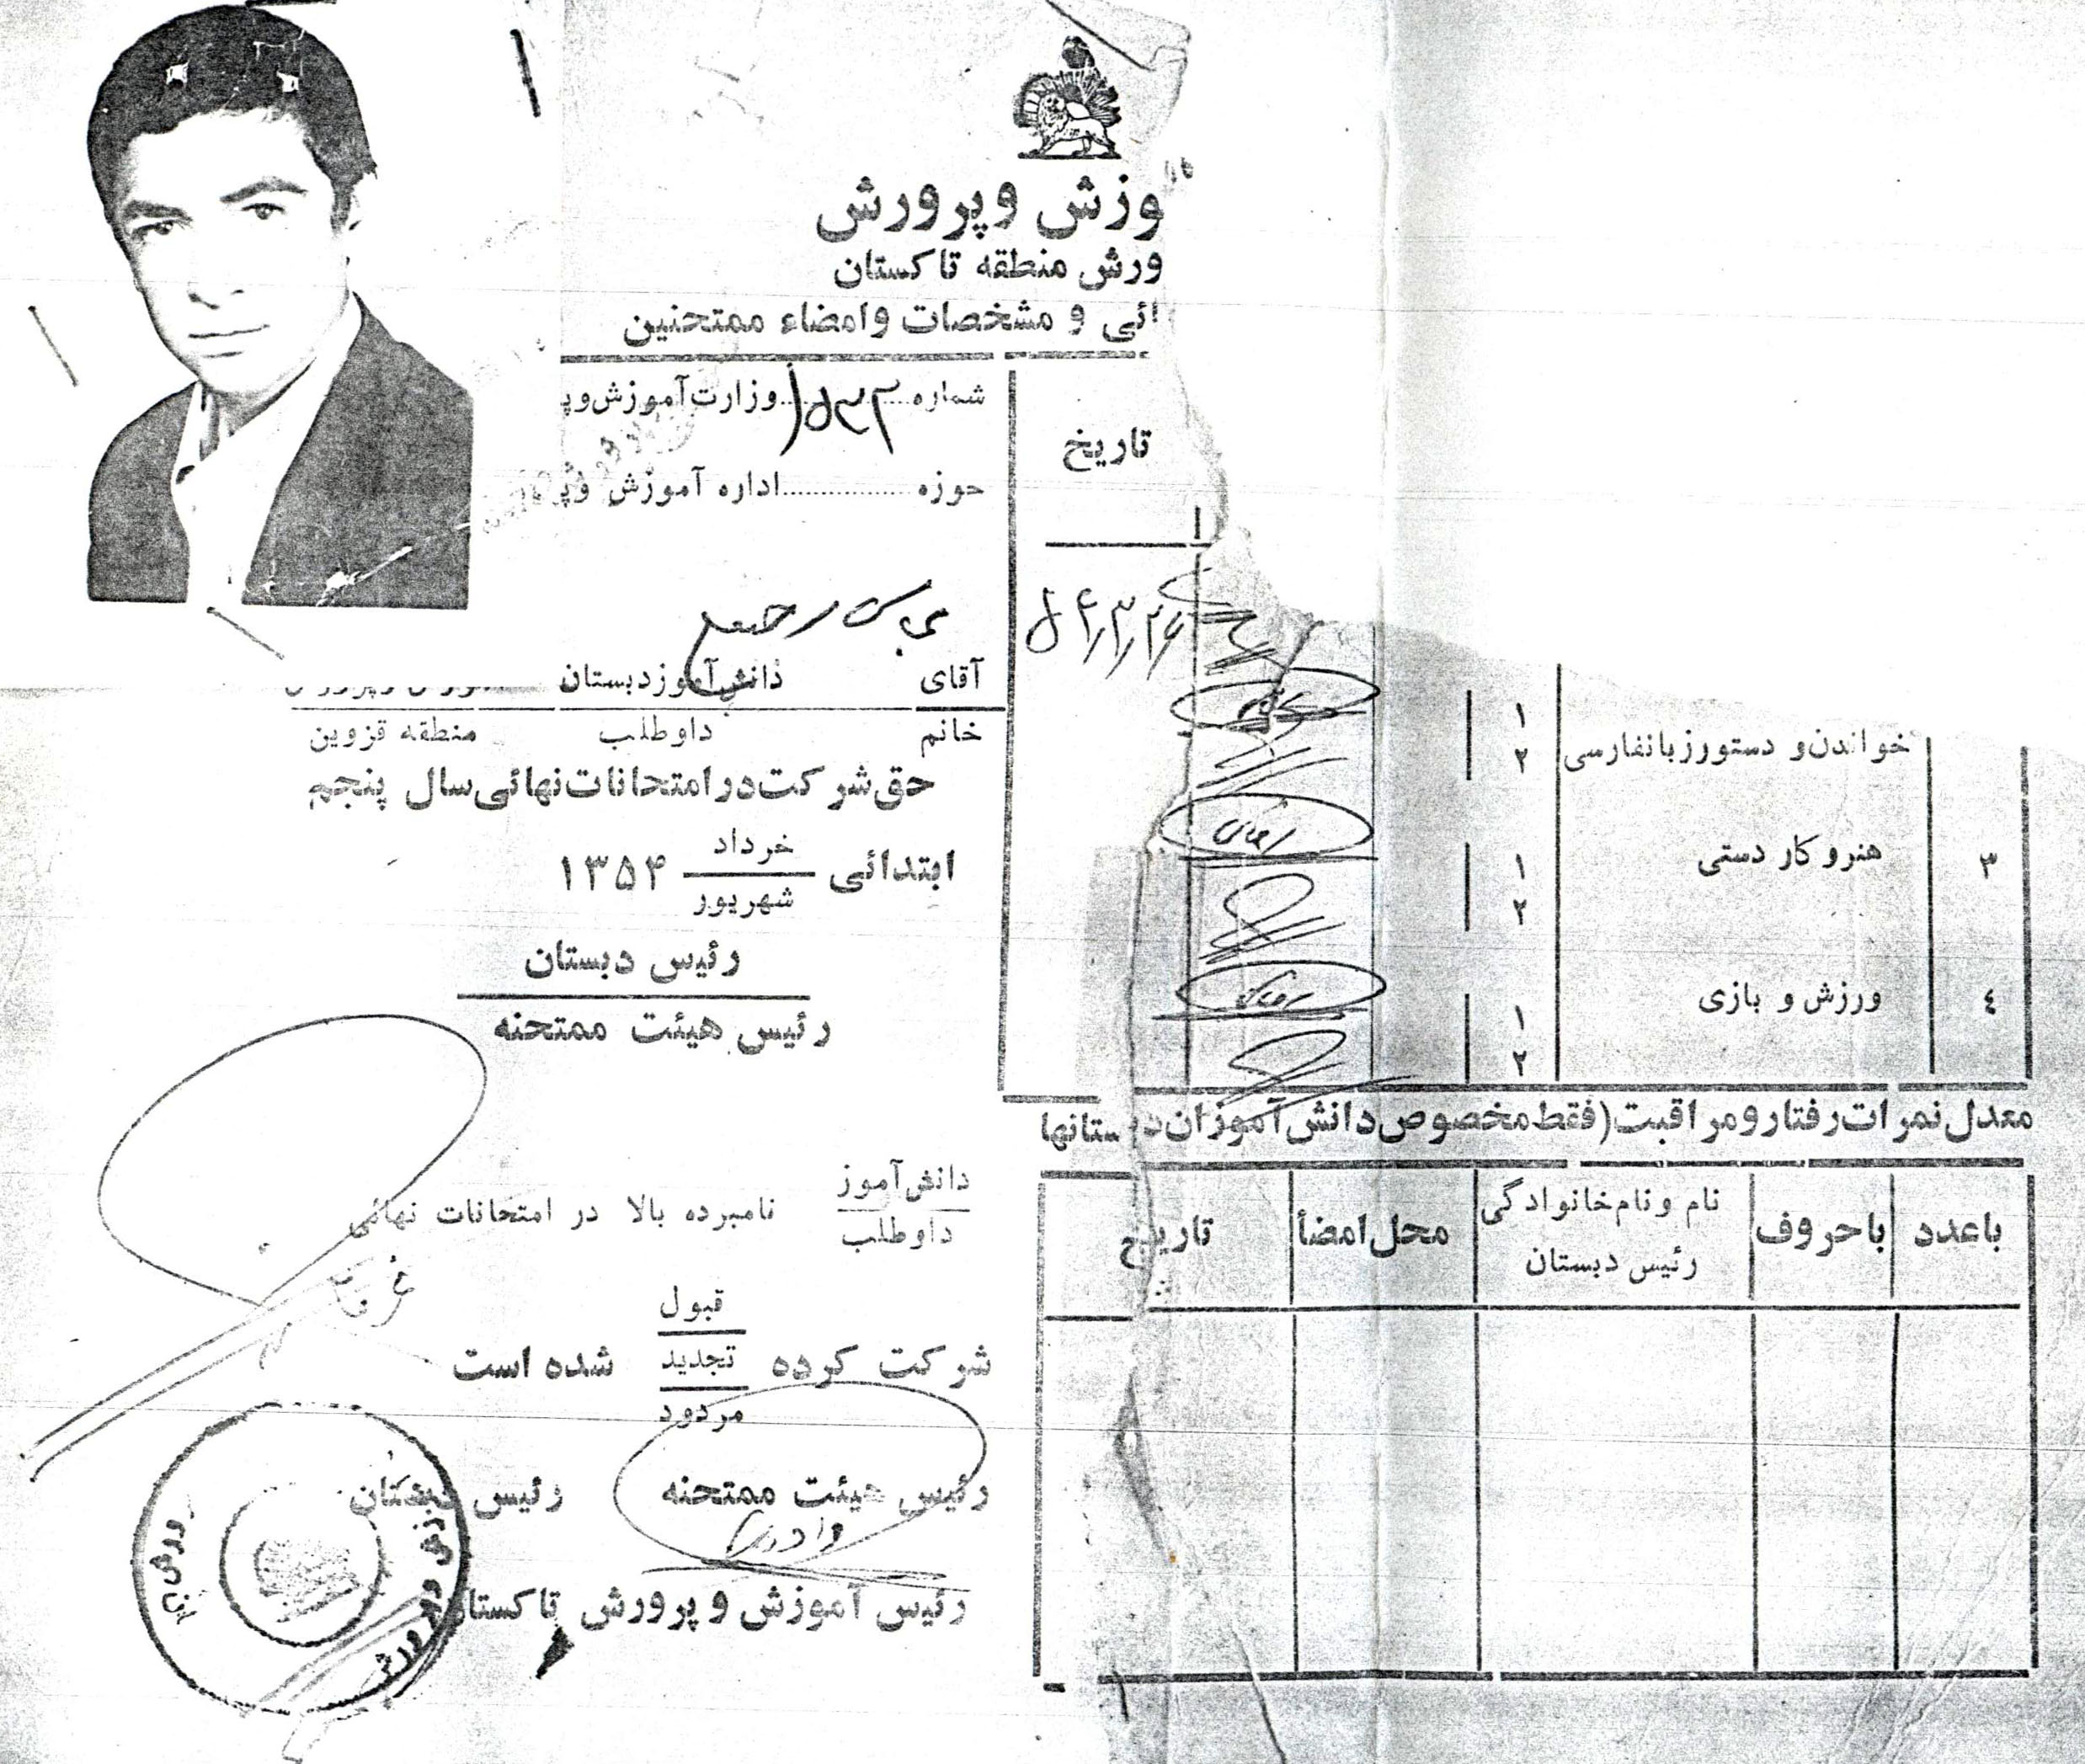 وزش و پرورش
ورش منطقه تاکستان
ائی و مشخصات و امضاء ممتحنین
شماره ۱۵۳۲ وزارت آموزش و پ
حوزه .......... اداره آموزش و پ
آقای دانش آموز دبستان
خانم داوطلب منطقه قزوین
حق شرکت در امتحانات نهائی سال پنجم
ابتدائی خرداد ۱۳۵۴
شهریور
رئیس دبستان
رئیس هیئت ممتحنه
دانش آموز
داوطلب
نامبرده بالا در امتحانات نهائی
قبول
شرکت کرده تجدید شده است
مردود
رئیس هیئت ممتحنه رئیس دبستان
رئیس آموزش و پرورش تاکستان
تاریخ
۵۴٫۳٫۲۶
۱
خواندن و دستور زبانفارسی
۲
۳ هنر و کار دستی ۱
۲
٤ ورزش و بازی ۱
۲
معدل نمرات رفتار و مراقبت (فقط مخصوص دانش آموزان دبستانها
باعدد باحروف نام و نام خانوادگی رئیس دبستان محل امضأ تاریخ